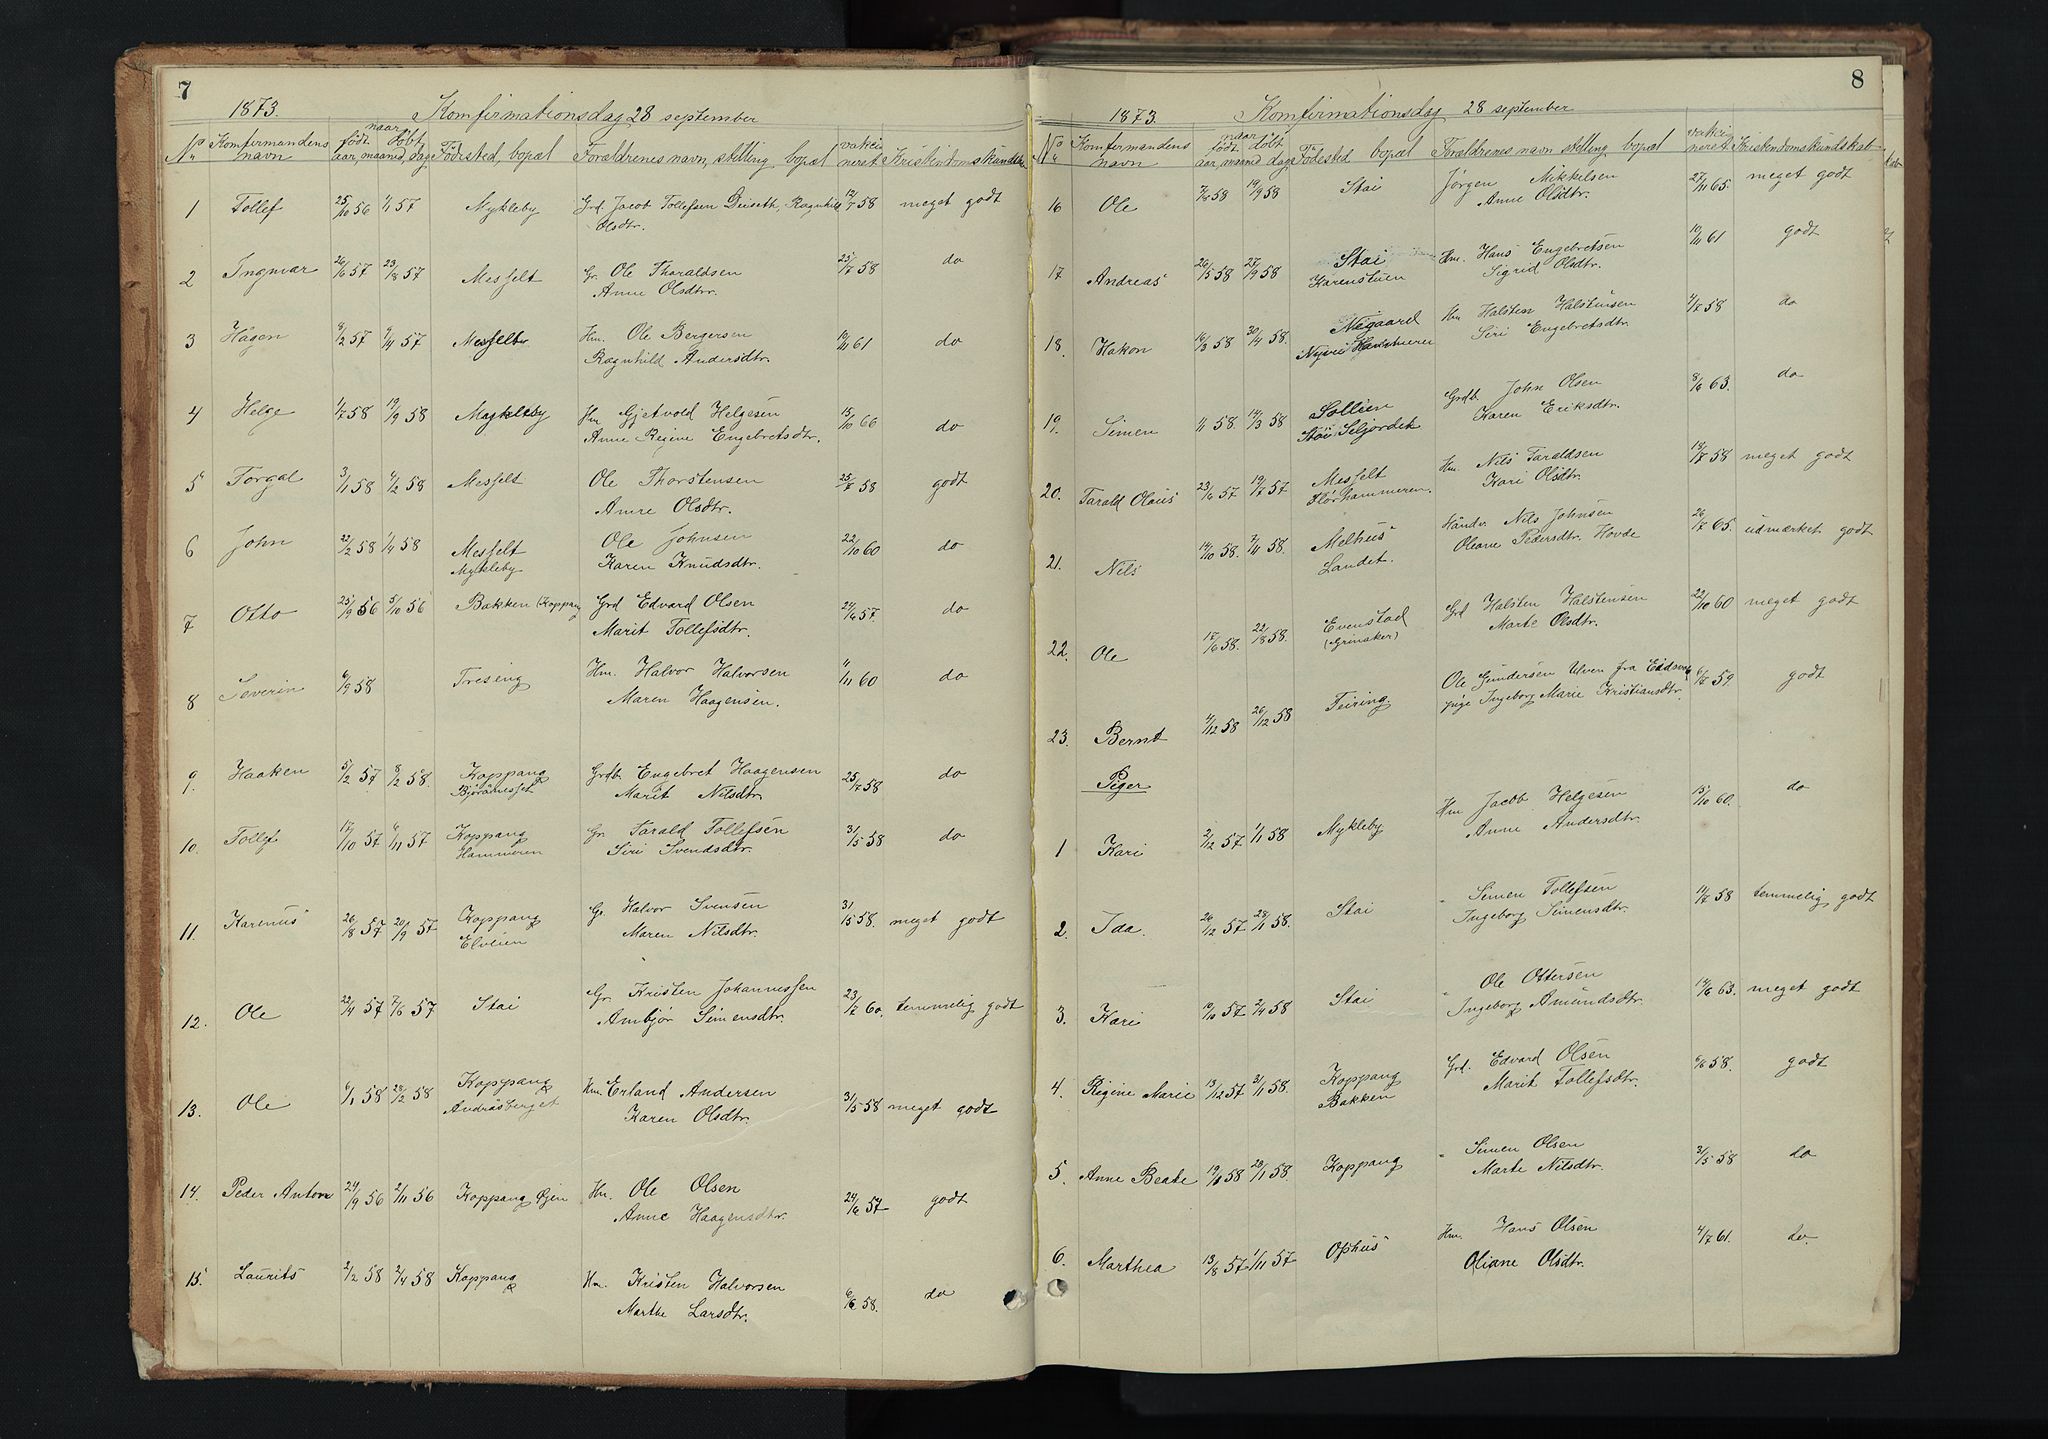 7
1873. Komfirmationsdag 28 september
No Komfirmandens navn naar født döbt aar, maaned, dag Födested, bopæl Forældrenes navn, stilling bopæl vakcineret Kristendomskundskab
1 Tollef 25/10 56 1/1 57 Mykleby Grd. Jacob Tollefsen Deiseth, Ragnhild 12/7 58 meget godt
Olsdtr.
2 Ingmar 26/6 57 23/8 57 Messelt Gr. Ole Tharaldsen 25/7 58 do
Anne Olsdtr.
3 Hågen 8/2 57 57 Messelt Hm. Ole Bergersen 19/11 61 do
Ragnhild Andersdtr.
4 Helge 1/7 58 19/9 58 Mykleby Hm Gjetvold Helgesen 15/10 66 do
Anne Regine Engebretsdtr.
5 Torgal 3/1 58 4/2 58 Messelt Ole Thorstensen 25/7 58 godt
Anne Olsdtr.
6 John 23/2 58 1/4 58 Messelt Ole Johnsen 22/10 60 do
Mykleby Karen Knudsdtr.
7 Otto 25/9 56 5/10 56 Bakken (Koppang Grd Edvard Olsen 24/6 57. do
Marit Tollefsdtr.
8 Severin 6/9 58 Treseng Hm. Halvor Halvorsen 11/11 60 do
Maren Haagensen.
9. Haaken 5/2 57 8/2 58. Koppang Grdb. Engebret Haagensen 25/7 58 do
Marit Nilsdtr.
10. Tollef 17/10 57 6/11 57 Koppang Gr. Tarald Tollefsen 31/5 58 do
Hammeren Siri Svendsdtr.
11. Karenus 26/8 57 20/9 57 Koppang Gr. Halvor Svensen 31/5 58. meget godt
Elveien Maren Nilsdtr.
12. Ole 22/4 57 7/6 57 Stai Gr. Kristen Johannessen 23/7 60. temmelig godt
Ambjør Simensdtr.
13. Ole 6/1 58 28/2 58 Koppang Hm Erland Andersen 31/5 58 meget godt
Andråsberget Karen Olsdtr.
14. Peder Anton 24/9 56 2/11 56 Koppang Øjen Hm. Ole Olsen 24/6 57 godt
Anne Haagensdtr.
15. Laurits 2/2 58 2/4 58 Koppang Hm. Kristen Halvorsen 6/6 58. do
Marthe Larsdtr.
8
1873. Komfirmationsdag 28 september
No Komfirmandens navn naar født döbt aar, maaned dag Födested bopæl Forældrenes navn stilling, bopæl vakcineret Kristendomskundskab
16 Ole 7/8 58 19/9 58 Stai Jörgen Mikkelsen 27/11 65. meget godt
Anne Olsdtr.
17 Andreas 26/5 58 27/9 58 Stai Hm. Hans Engebretsen 19/11 61 godt
Karenstuen Sigrid Olsdtr.
18. Hakon 16/3 58 30/4 58. Negaard Hm Halsten Halstensen 7/7 58 do
Hammeren Siri Engebretsdtr.
19. Simen 1/1 58. 14/3 58 Sollien Grdb. John Olsen 8/6 63. do
Stöe Seljordet Karen Eriksdtr.
20. Tarald Olaus 23/6 57 19/7 57 Messelt Hm. Nils Taraldsen 12/7 58 meget godt
Klörhammeren. Kari Olsdtr.
21. Nils 14/10 58. 7/11 58. Melhus Nils Johnsen 26/7 65. udmærket godt
Landet. Oleane Pedersdtr. Hovde
22. Ole 17/6 58. 22/8 58. Evenstad Grd Halsten Halstensen 22/10 60 meget godt
(Grinaker) Marte Olsdtr.
23. Bernt 4/12 58 26/12 58 Feiring Ole Gundersen Ulven fra Eidsvog 6/7 59 godt
pige Ingeborg Marie Kristiansdtr.
Piger
1 Kari 2/12 57 1/1 58 Mykleby Hm Jacob Helgesen 15/10 60. do
Anne Andersdtr.
2. Ida. 26/12 57 28/1 58. Stai " Simen Tollefsen 14/7 58 temmelig godt
Ingeborg Simensdtr.
3. Kari 19/10 57 2/4 58 Stai " Ole Ottersen 14/6 63. meget godt
Ingeborg Amundsdtr.
4. Regine Marie 13/12 57 3/1 58. Koppang Grd. Edvard Olsen 6/6 58. godt
Bakken Marit Tollefsdtr.
5. Anne Beate 58 28/1 58. Koppang " Simen Olsen 31/5 58 do
Marte Nilsdtr.
6. Marthea 13/8 57 1/11 57 Ophus Hm. Hans Olsen 4/7 61. do.
Oliane Olsdtr.